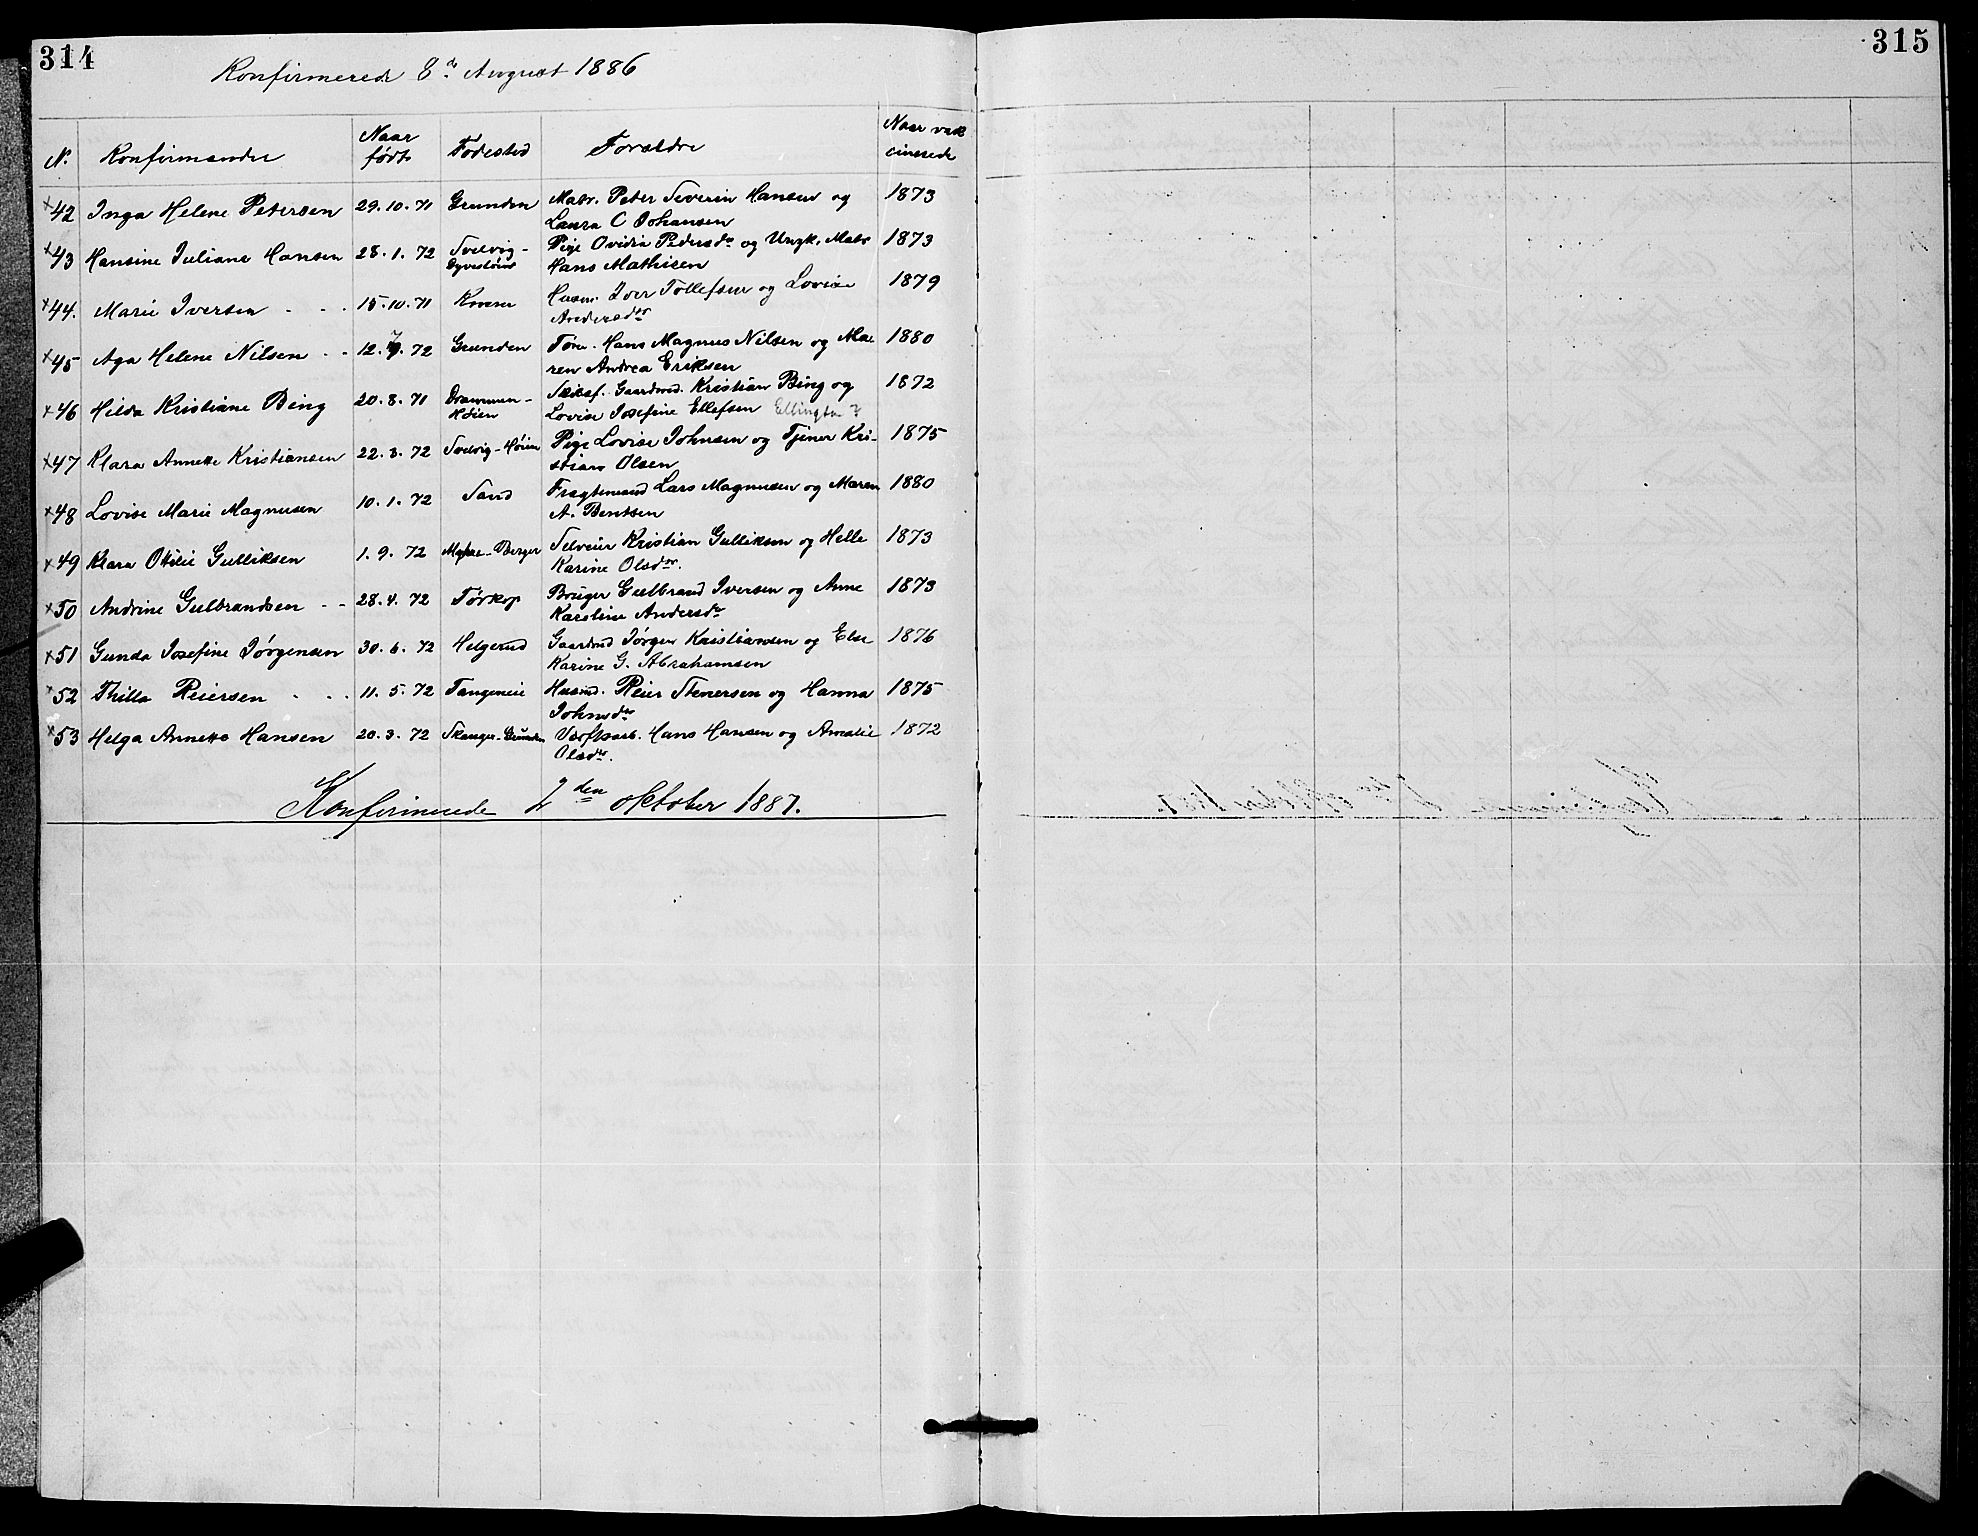 314
Konfirmerede 8de August 1886
N. Konfirmander Naar født Fødested Forældre Naar vakcinerede
x42 Inga Helene Petersen 29.10.71 Grunden Matr. Peter Severin Hansen og 1873
Laura C Johansen
x43 Hansine Juliane Hansen 28.1.72 Svelvig- Pige Ovidia Pedersdr og Ungk. Matr 1873
Hans Mathisen
x44. Marie Iversen - - - 15.10.71 Husm. Iver Tollefsen og Lovise 1879
Andersdtr
x45 Aga Helene Nilsen - - 12.7.72 Grunden Tøm. Hans Magnus Nilsen og Ma- 1880
ren Andrea Eriksen
x46 Hilda Kristiane Bing 20.8.71 Drammen- Gaardmd. Kristian Bing og 1872
Høien Lovise Josefine Ellefsen Ellingsen ?
x47 Klara Annette Kristiansen 22.3.72 Svelvig-Høien Pige Lovise Johnsen og Tjener Kri- 1875
stian Olsen
x48 Lovise Marie Magnusen 10.1.72 Sand Fragtemand Lars Magnusen og Maren 1880
A. Bentsen
x49 Klara Otilie Gulliksen 1.9.72 Berger Selveier Kristian Gulliksen og Helle 1873
Karine Olsdtr.
x50 Andrine Gulbrandsen - - 28.4.72 Tørkop Bruger Gulbrand Iversen og Anne 1873
Karoline Andersdr
x51 Gunda Josefine Jørgensen 30.6.72 Helgerud Gaardmd Jørgen Kristiansen og Else 1876
Karine G. Abrahamsen
x52 Thilla Reiersen - - - 11.5.72 Tangeneie Husmd. Reier Stenersen og Hanna 1875
Johnsdtr
x53 Helga Annette Hansen 20.3.72 Stanger-Grunden Værftsarb. Hans Hansen og Amalie 1872
Olsdtr.
Konfirmerede 2den Oktober 1887.
315